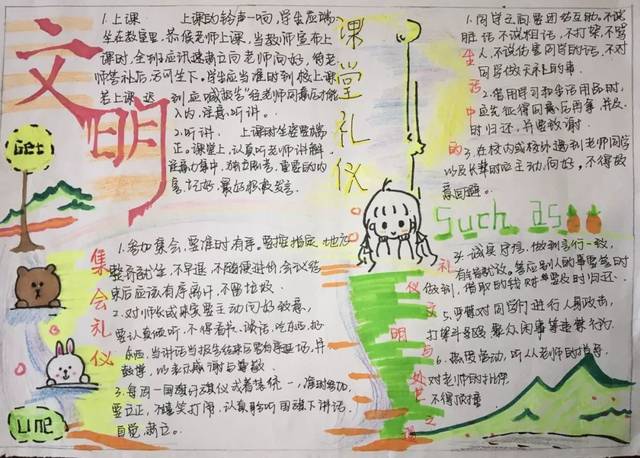 文明
Get
1.上课 上课的铃声一响,学生应端
坐在教室里,恭候老师上课,当教师宣布上
课时,全班应迅速起立向老师问好,待老
师答礼后方可坐下。学生应当准时到校上课
若上课迟到应喊报告,经老师同意后才能
入内,注意听讲。
2.听讲, 上课时坐姿要端
正。课堂上,认真听老师讲解
注意力集中,独立思考,重要的内
容
课堂礼仪
集会礼仪
1.参加集会,要准时有序,要按指定地点
整齐就坐,不早退,不随便进行会议结
束后应该有序离开,不留垃圾
2.对师长或来宾要主动问好致意,
要认真倾听,不得看书、谈话、吃东西
东西,当讲话当报告结束后要有
鼓掌,以表示感谢与尊敬
3.每周一国旗升旗仪
要立正,不嬉笑打闹,认真聆听国旗下讲话
自觉,肃立。
Line
生活中的
1.同学之间要团结互助,不说
脏话不说粗话,不打架,不骂
人,不说伤害同学的话,不对
同学做
2.借用学习和生活用品时,
应先征得同意后再拿,并及
时归还,并要致谢.
3.在校内或校外遇到老师同学
以及长辈时应主动问好。不得故
意回避。
Such as
礼仪文明与处
4.诚实守信,做到言行一致,
做到,借取的钱财要及时归还.
5.严禁对同学们进行人身攻击,
打架斗殴聚众闹事等违禁行为.
6.热爱劳动,听从老师的指导,
对老师的批评
不得顶撞